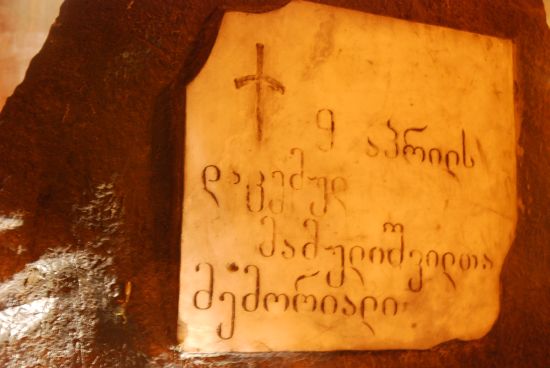 9 აპრილს
დაცემულ
მამულიშვილთა
მემორიალი